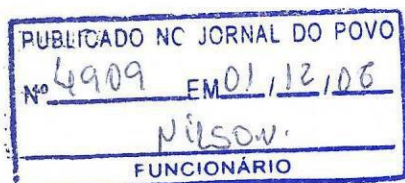 PUBLICADO NO JORNAL DO POVO
Nº 4909 EM 01/12/06
Nilson.
FUNCIONÁRIO